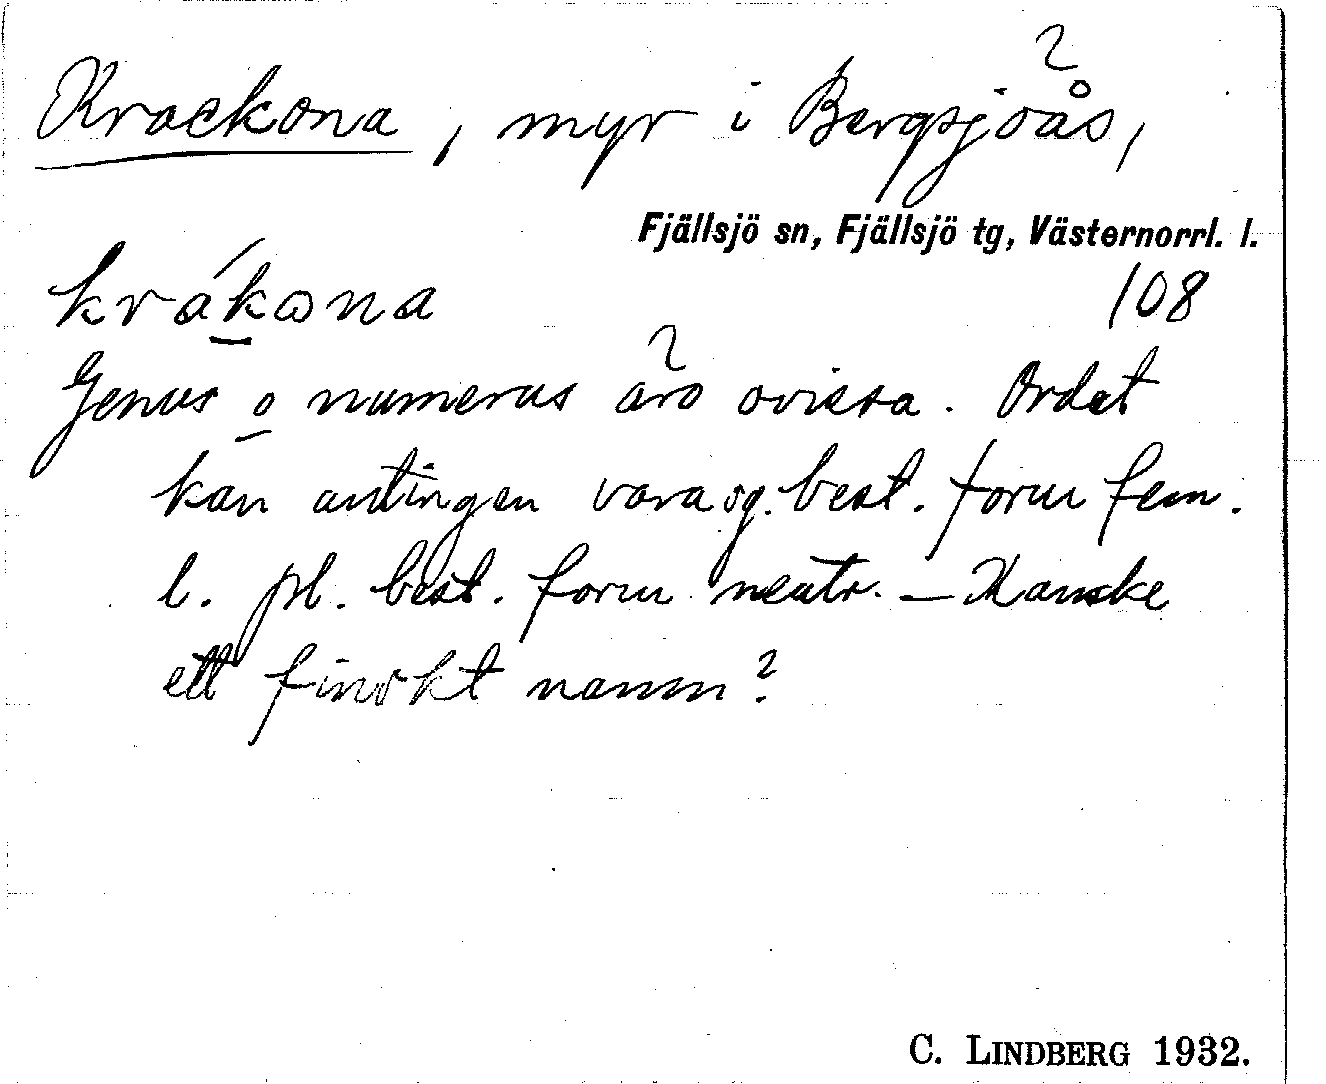 Krackona, myr i Bergsjöås,
Fjällsjö sn, Fjällsjö tg, Västernorrl. l.
krák̠ωna 108
Genus o̲ numerus äro ovissa. Ordet
kan antingen vara sg. best. form fem.
l. pl. best. form neutr. – Kanske
ett finskt namn?
C. LINDBERG 1932.